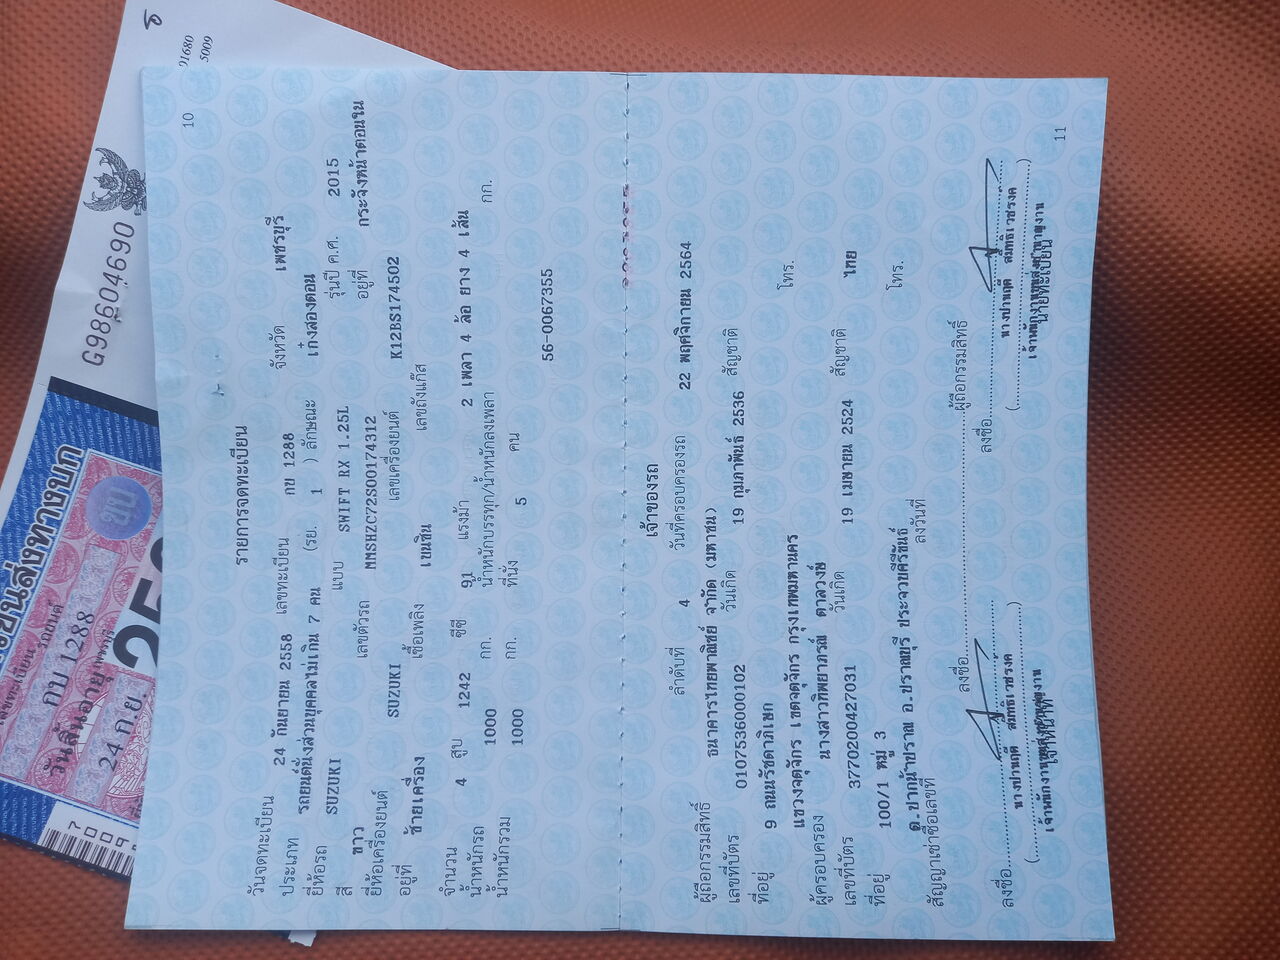 10
รายการจดทะเบียน
วันจดทะเบียน 24 กันยายน 2558 เลขทะเบียน กข 1288 จังหวัด เพชรบุรี
ประเภท รถยนต์นั่งส่วนบุคคลไม่เกิน 7 คน (รย. 1 ) ลักษณะ เก๋งสองตอน
ยี่ห้อรถ SUZUKI แบบ SWIFT RX 1.25L รุ่นปี ค.ศ. 2015
สี ขาว เลขตัวรถ MMSHZC72S00174312 อยู่ที่ กระจังหน้าตอนใน
ยี่ห้อเครื่องยนต์ SUZUKI เลขเครื่องยนต์ K12BS174502
อยู่ที่ ซ้ายเครื่อง เชื้อเพลิง เบนซิน เลขถังแก๊ส
จำนวน 4 สูบ 1242 ซีซี 91 แรงม้า 2 เพลา 4 ล้อ ยาง 4 เส้น
น้ำหนักรถ 1000 กก. น้ำหนักบรรทุก/น้ำหนักลงเพลา กก.
น้ำหนักรวม 1000 กก. ที่นั่ง 5 คน
56-0067355
เจ้าของรถ
ลำดับที่ 4 วันที่ครอบครองรถ 22 พฤศจิกายน 2564
ผู้ถือกรรมสิทธิ์ ธนาคารไทยพาณิชย์ จำกัด (มหาชน)
เลขที่บัตร 0107536000102 วันเกิด 19 กุมภาพันธ์ 2536 สัญชาติ
ที่อยู่ 9 ถนนรัชดาภิเษก โทร.
แขวงจตุจักร เขตจตุจักร กรุงเทพมหานคร
ผู้ครอบครอง นางสาวทิพยาภรณ์ ตาลวงษ์
เลขที่บัตร 3770200427031 วันเกิด 19 เมษายน 2524 สัญชาติ ไทย
ที่อยู่ 100/1 หมู่ 3 โทร.
ต.ปากน้ำปราณ อ.ปราณบุรี ประจวบคีรีขันธ์
สัญญาเช่าซื้อเลขที่ ลงวันที่
ลงชื่อ ผู้ถือกรรมสิทธิ์
ลงชื่อ ลงชื่อ
เจ้าหน้าที่ นายทะเบียน
11
G98604690
01680
5009
กข 1288
วันสิ้นอายุ
24 ก.ย.